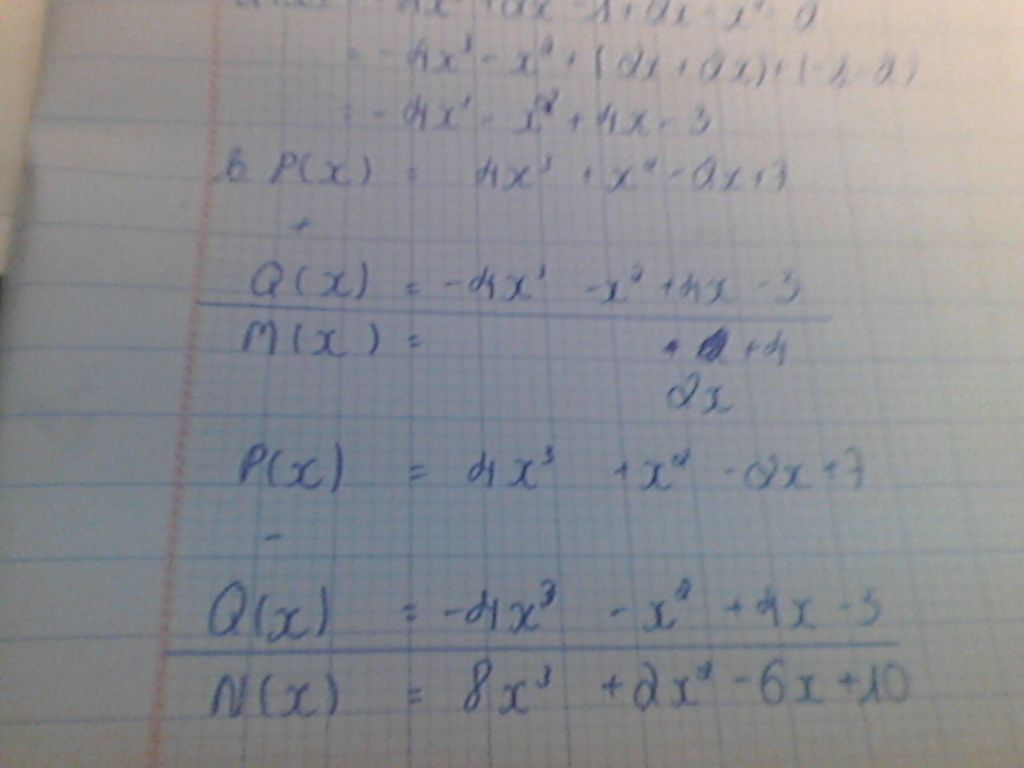 = -4x³ - x² + (2x + 2x) + (-1-2)
= -4x³ - x² + 4x - 3
b P(x) = 4x³ + x² - 2x + 7
+
Q(x) = -4x³ - x² + 4x - 3
M(x) = + 4
2x
P(x) = 4x³ + x² - 2x + 7
-
Q(x) = -4x³ - x² + 4x - 3
N(x) = 8x³ + 2x² - 6x + 10